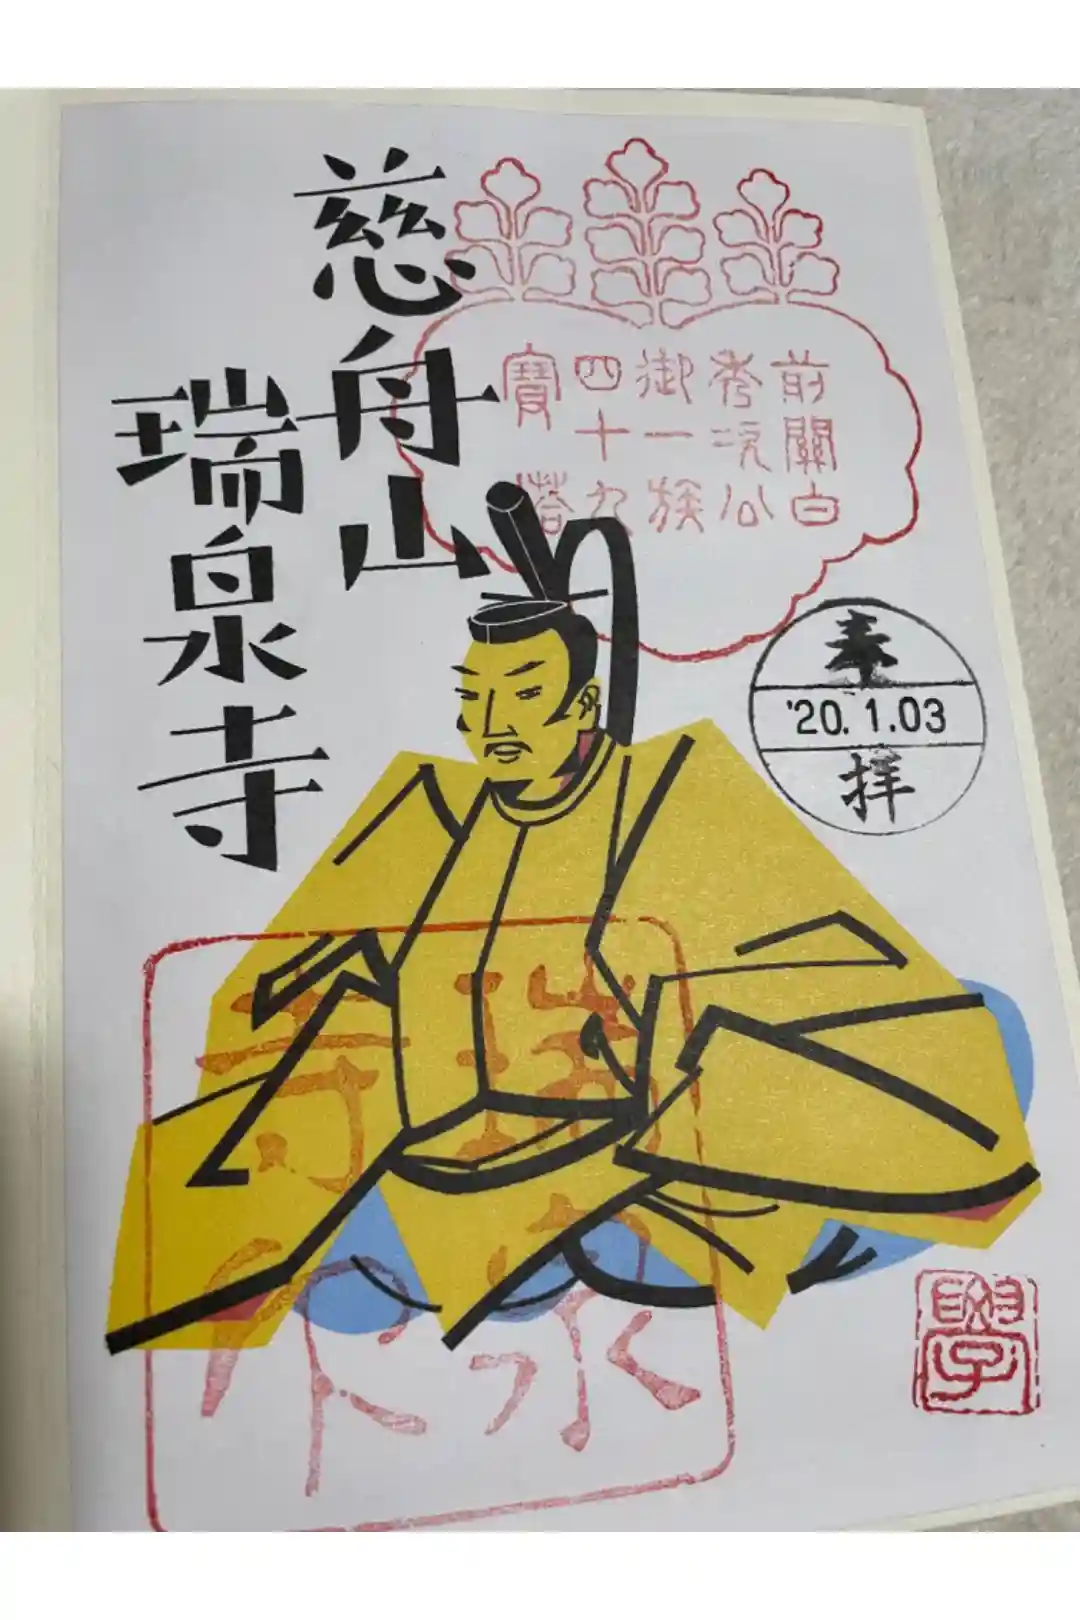 前關白
秀次公
御一族
四十九
寶塔
奉
'20. 1.03
拝
慈舟山
瑞泉寺
瑞泉
寺印
學